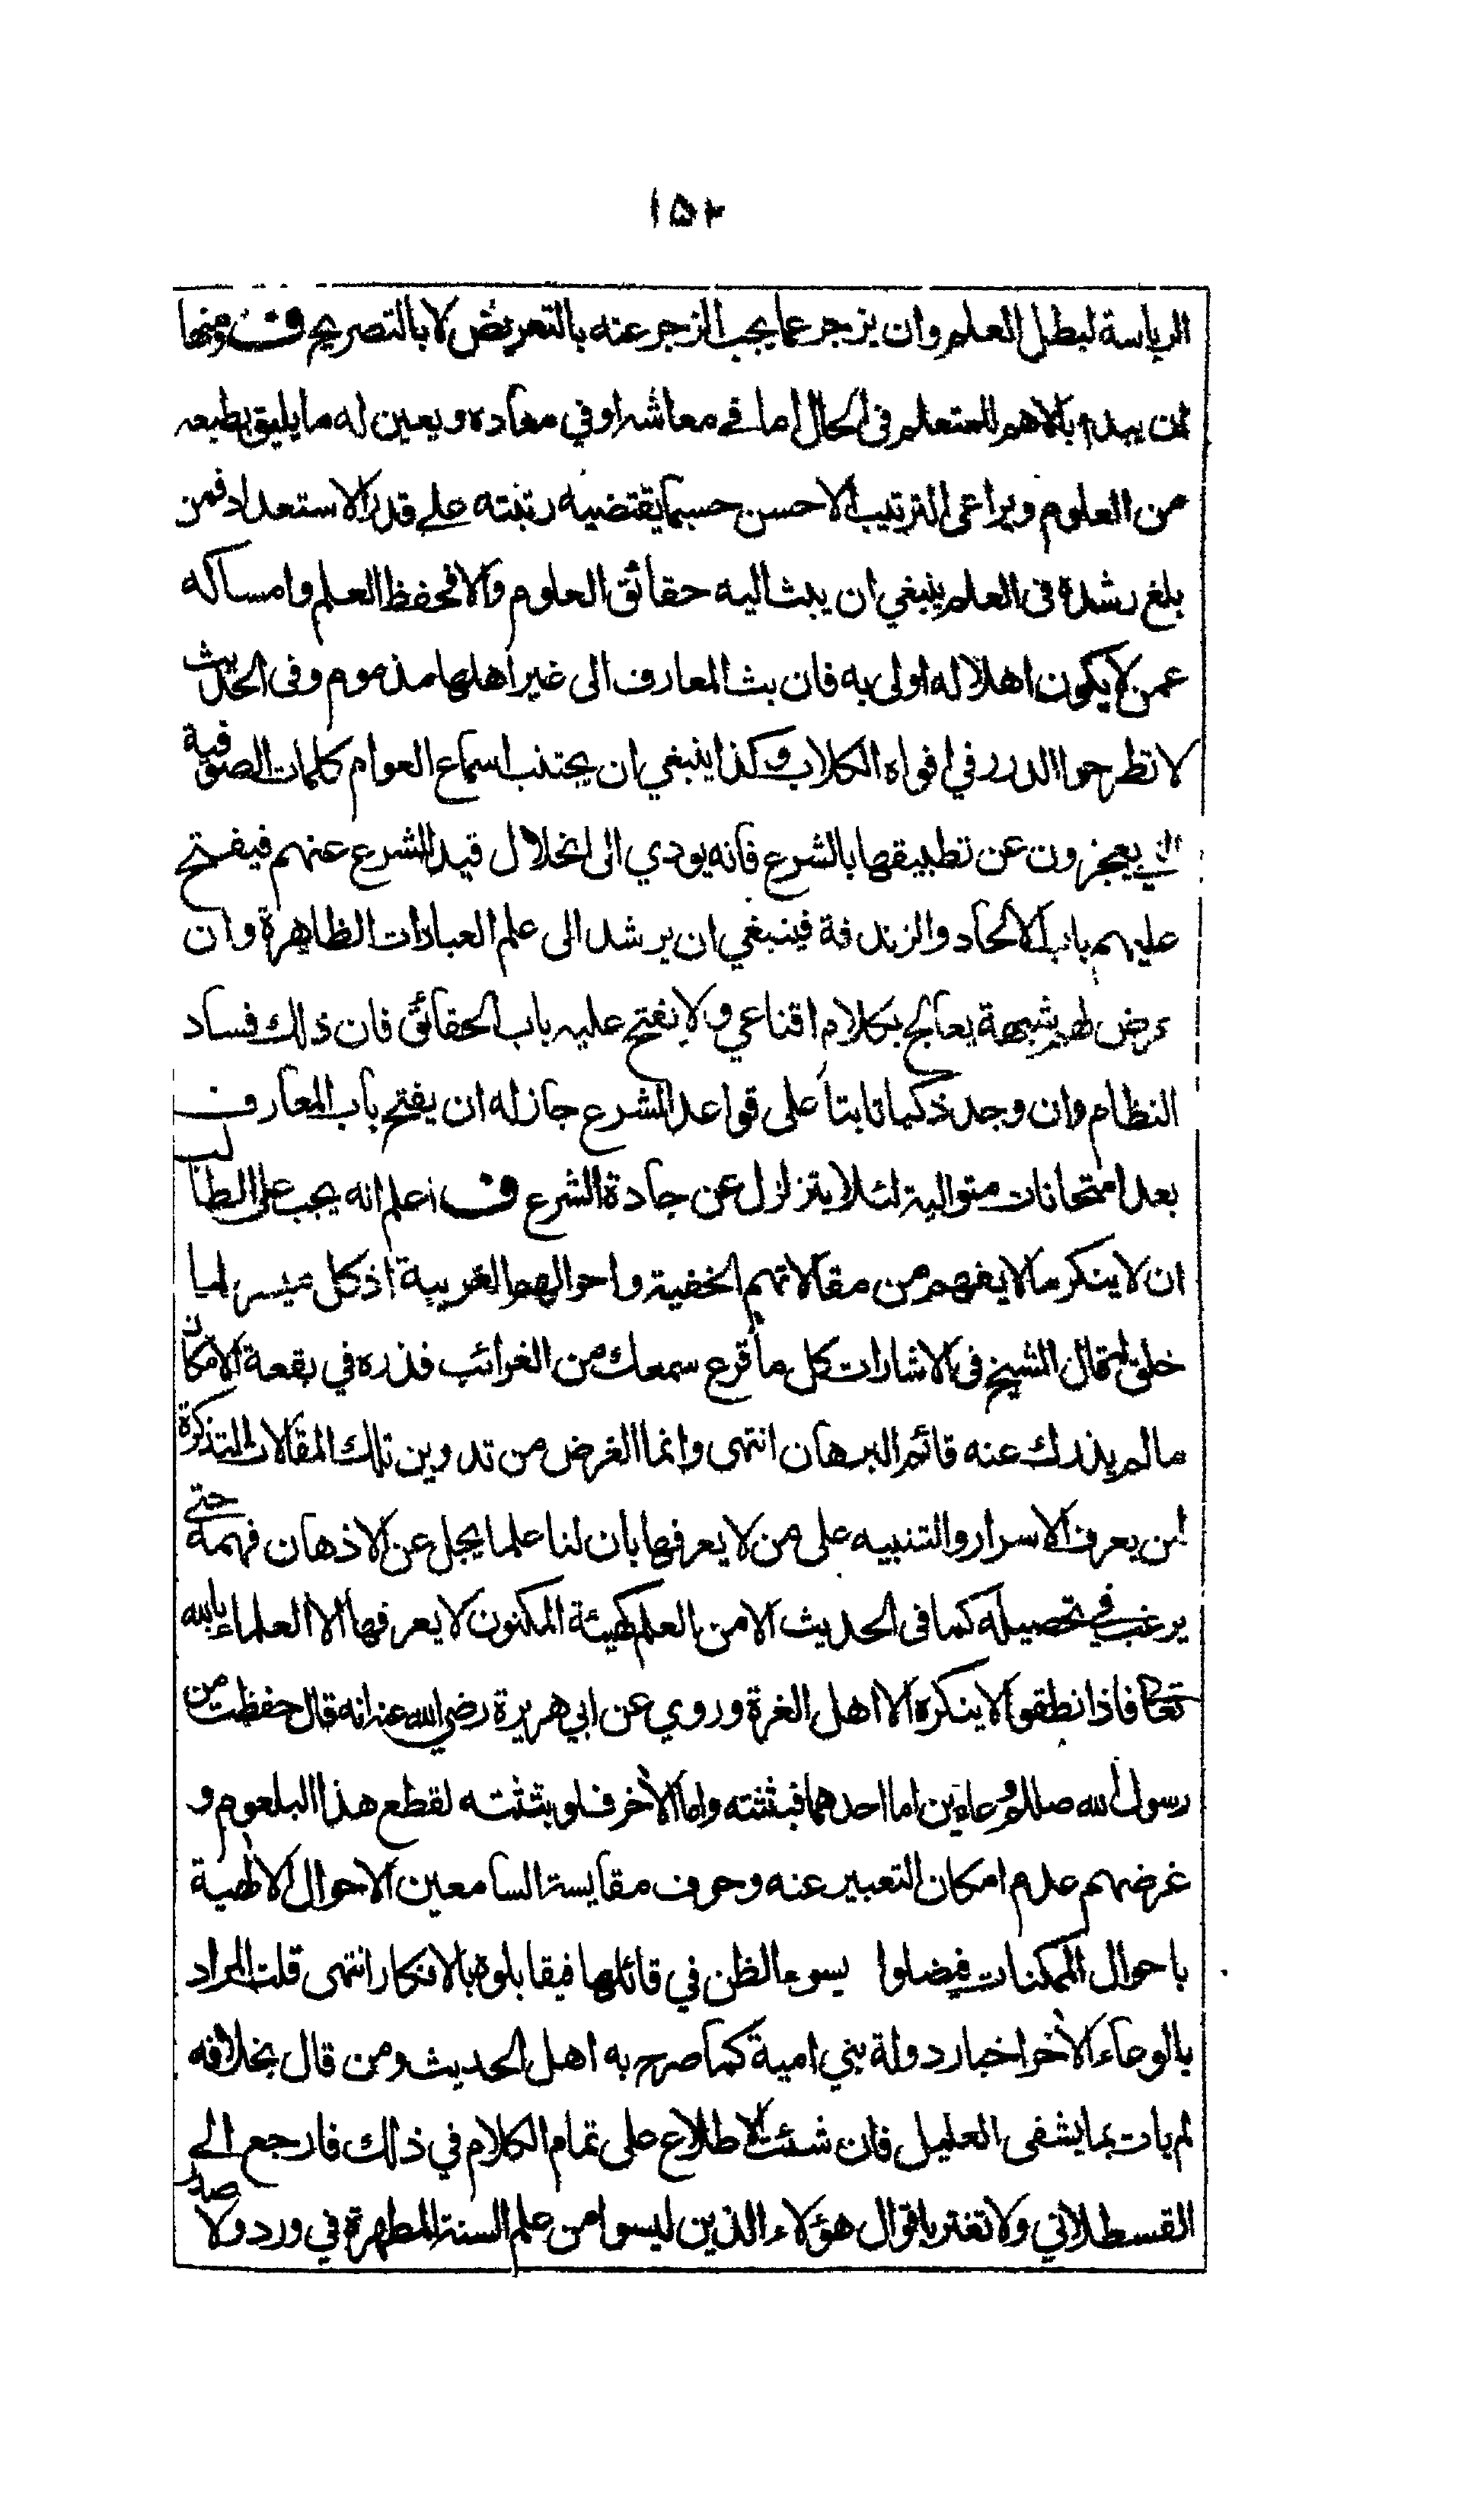 ١٥٢
الرياسة لبطل العلم وان يزجر عما يجب الزجر عنه بالتعريض لا بالتصريح ف ومنها
ان يبدء بالاهم للمتعلم فى الحال اما في معاشه او في معاده ويعين له ما يليق بطبعه
من العلوم ويراعى الترتيب الاحسن حسبما يقتضيه رتبته على قدر الاستعداد فمن
بلغ رشده فى العلم ينبغي ان يبث اليه حقائق العلوم والا فحفظ العلم وامساكه
عمن لا يكون اهلا له اولى به فان بث المعارف الى غير اهلها مذموم وفى الحديث
لا تطرحوا الدرر في افواه الكلاب وكذا ينبغي ان يجتنب اسماع العوام كلمات الصوفية
التي يعجزون عن تطبيقها بالشرع فانه يودي الى انحلال قيد الشرع عنهم فيفتح
عليهم باب الالحاد والزندقة فينبغي ان يرشد الى علم العبادات الظاهرة وان
عرض لهم شبهة يعالج بكلام اقناعي ولا يفتح عليه باب الحقائق فان ذلك فساد
النظام وان وجد ذكيا ثابتا على قواعد الشرع جاز له ان يفتح باب المعارف
بعد امتحانات متوالية لئلا يتزلزل عن جادة الشرع ف اعلم انه يجب على الطالب
ان لا ينكر ما لا يفهم من مقالاتهم الخفية واحوالهم الغريبة اذ كل ميسر لما
خلق له قال الشيخ فى الاشارات كل ما قرع سمعك من الغرائب فذره في بقعة الامكان
ما لم يذدك عنه قائم البرهان انتهى وانما الغرض من تدوين تلك المقالات التذكرة
لمن يعرف الاسرار والتنبيه على من لا يعرفها بان لنا علما يجل عن الاذهان فهمه حتى
يرغب في تحصيله كما فى الحديث الا من العلم كهيئة المكنون لا يعرفها الا العلماء بالله
تعالى فاذا نطقوا لا ينكره الا اهل الغرة وروي عن ابي هريرة رضي الله عنه انه قال حفظت من
رسول الله صللم وعاءين اما احدهما فبثثته واما الآخر فلو بثثته لقطع هذا البلعوم و
غرضهم عدم امكان التعبير عنه وخوف مقايسة السامعين الاحوال الالهية
باحوال الممكنات فيضلوا بسوء الظن في قائلها فيقابلوه بالانكار انتهى قلت المراد
بالوعاء الآخر اخبار دولة بني امية كما صرح به اهل الحديث ومن قال بخلافه
لم يات بما يشفى العليل فان شئت الاطلاع على تمام الكلام في ذلك فارجع الى
القسطلاني ولا تغتر باقوال هؤلاء الذين ليسوا من علم السنة المطهرة في ورد ولا صدر